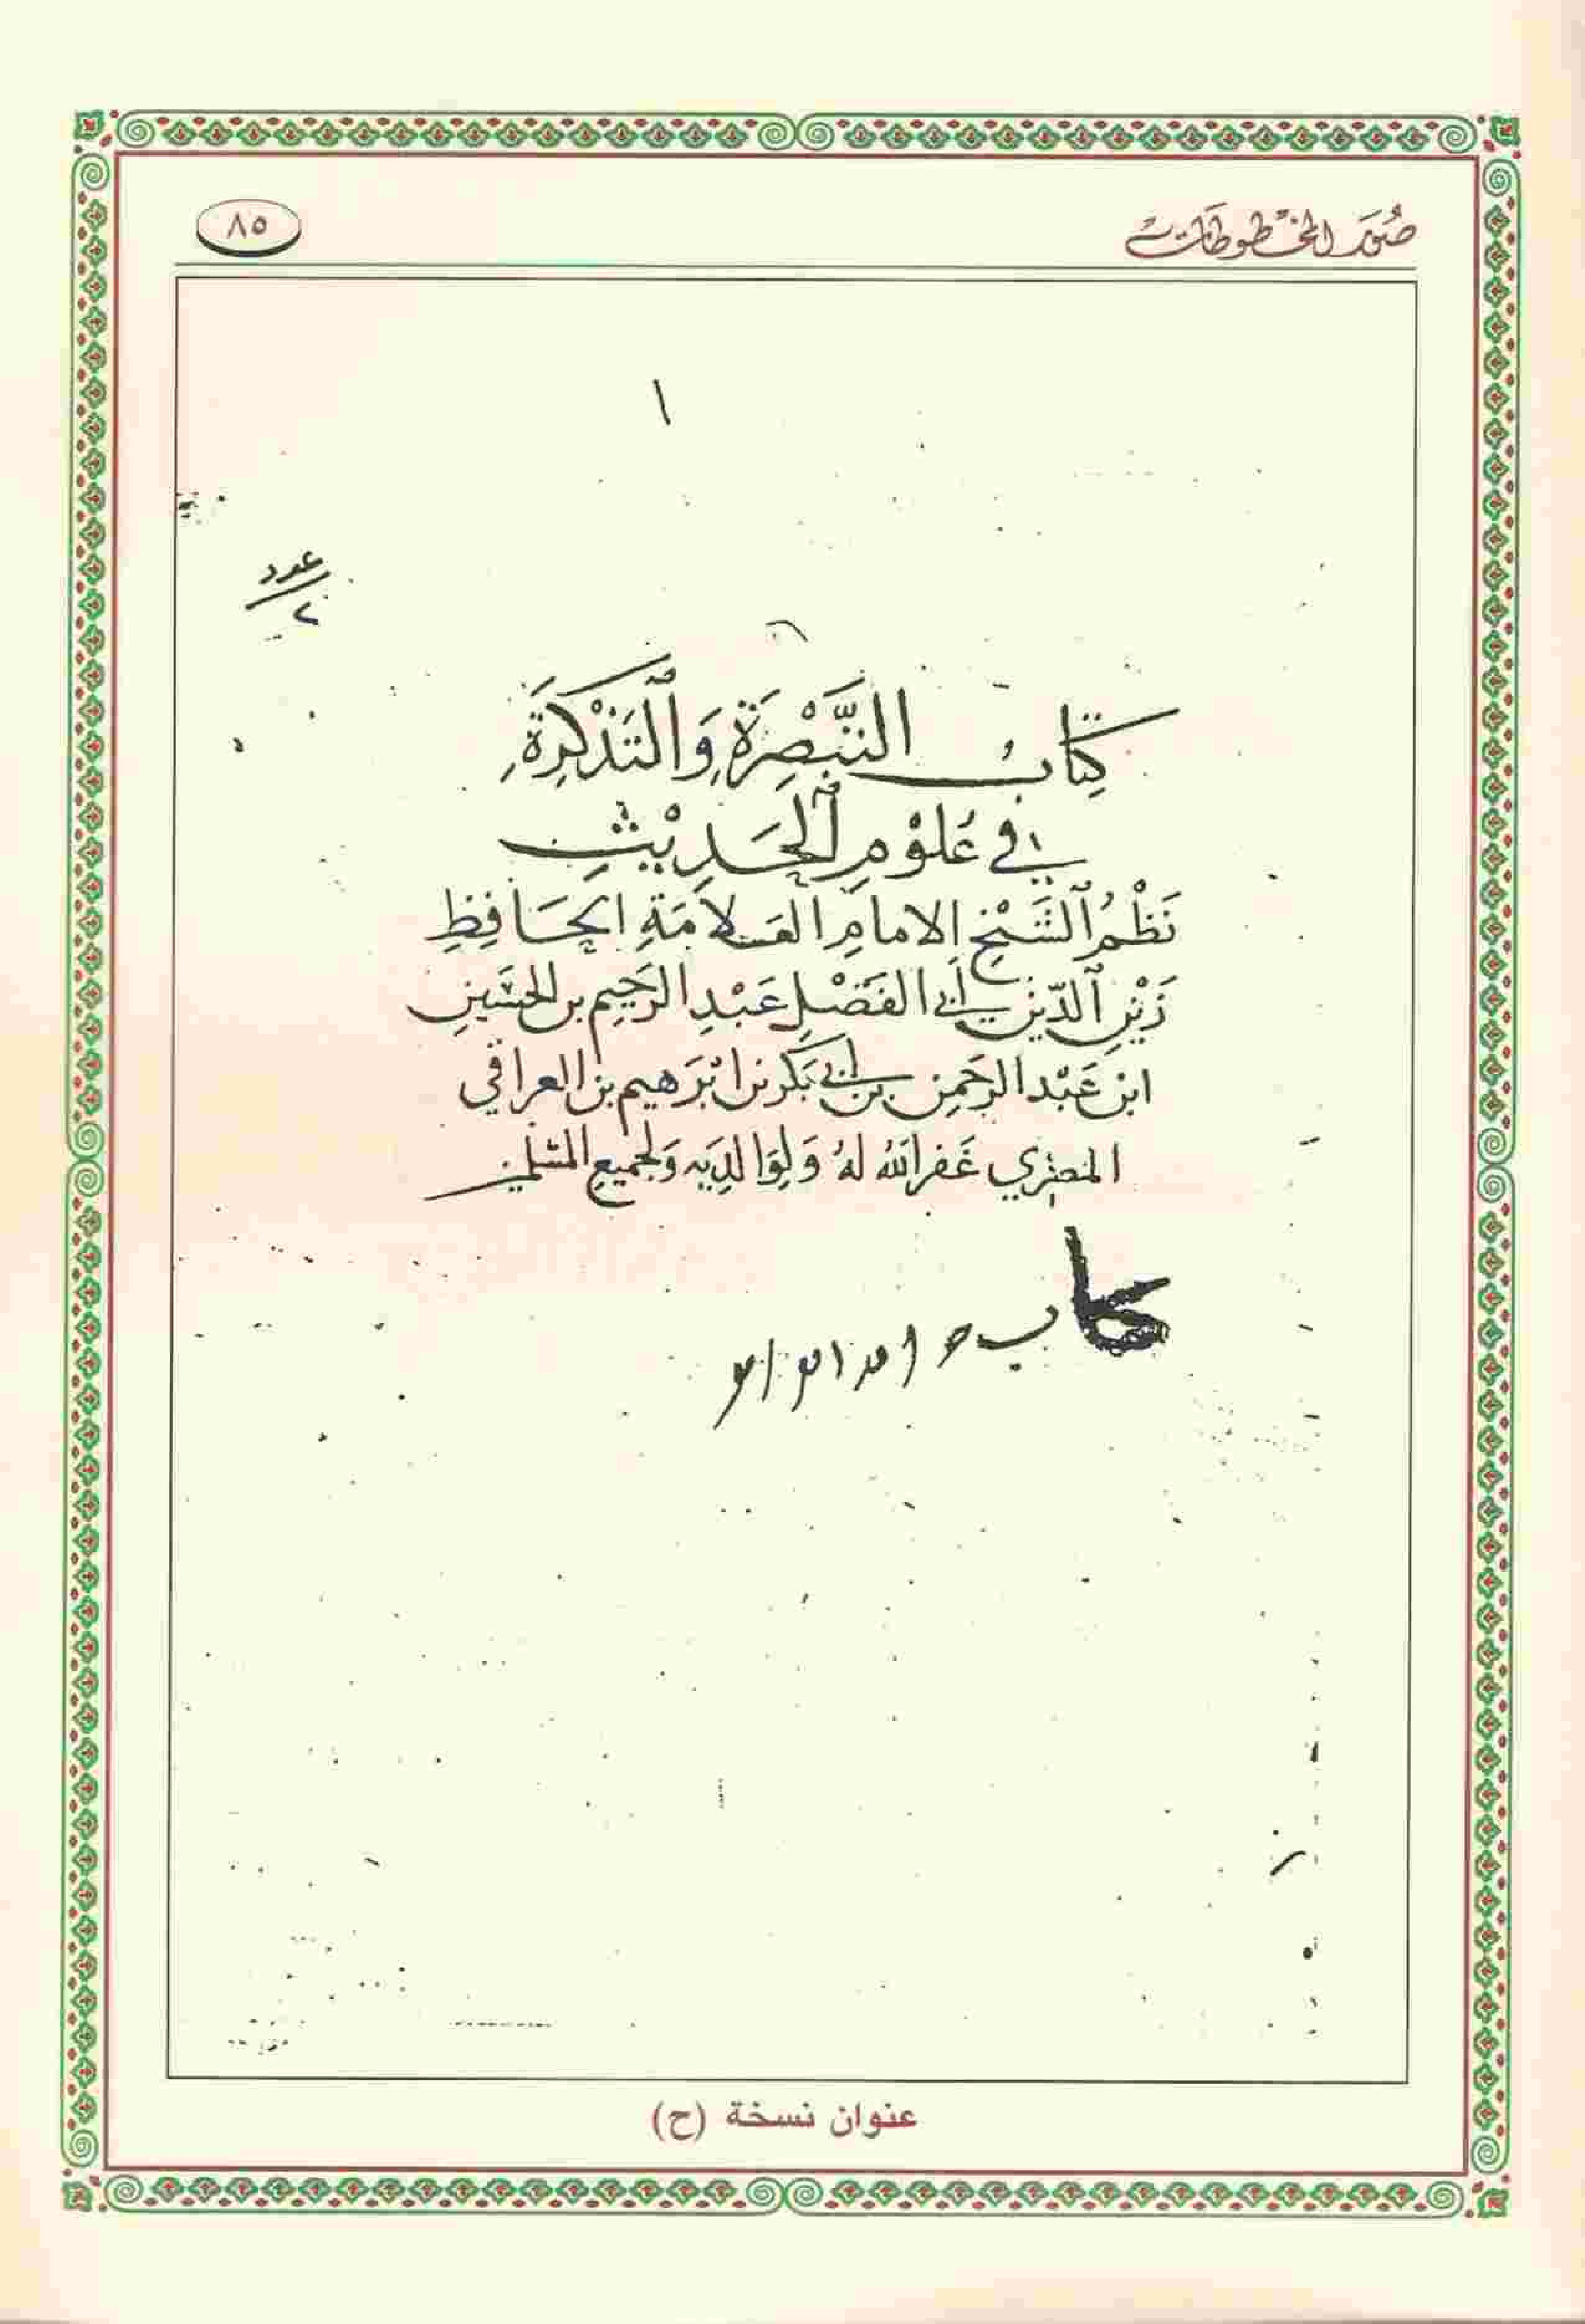 صُوَر المخطوطات
٨٥
١
عدد
٢
كِتَابُ التَّبْصِرَةِ وَالتَّذْكِرَةِ
في عُلُوْمِ الْحَدِيْثِ
نَظْمُ الشَّيْخِ الامامِ العَلاّمَةِ الحَافِظِ
زَيْنِ الدِّيْنِ أبي الفَضْلِ عَبْدِ الرَحِيمِ بن الحسَينِ
ابن عَبْد الرحَمنِ بن أبي بَكرِ بن ابْرَهيم بن العراقي
المصْرِي غَفر اللهُ لهُ وَلِوَالِدَيهِ وَلجميع المسْلمين
كتاب
عنوان نسخة (ح)